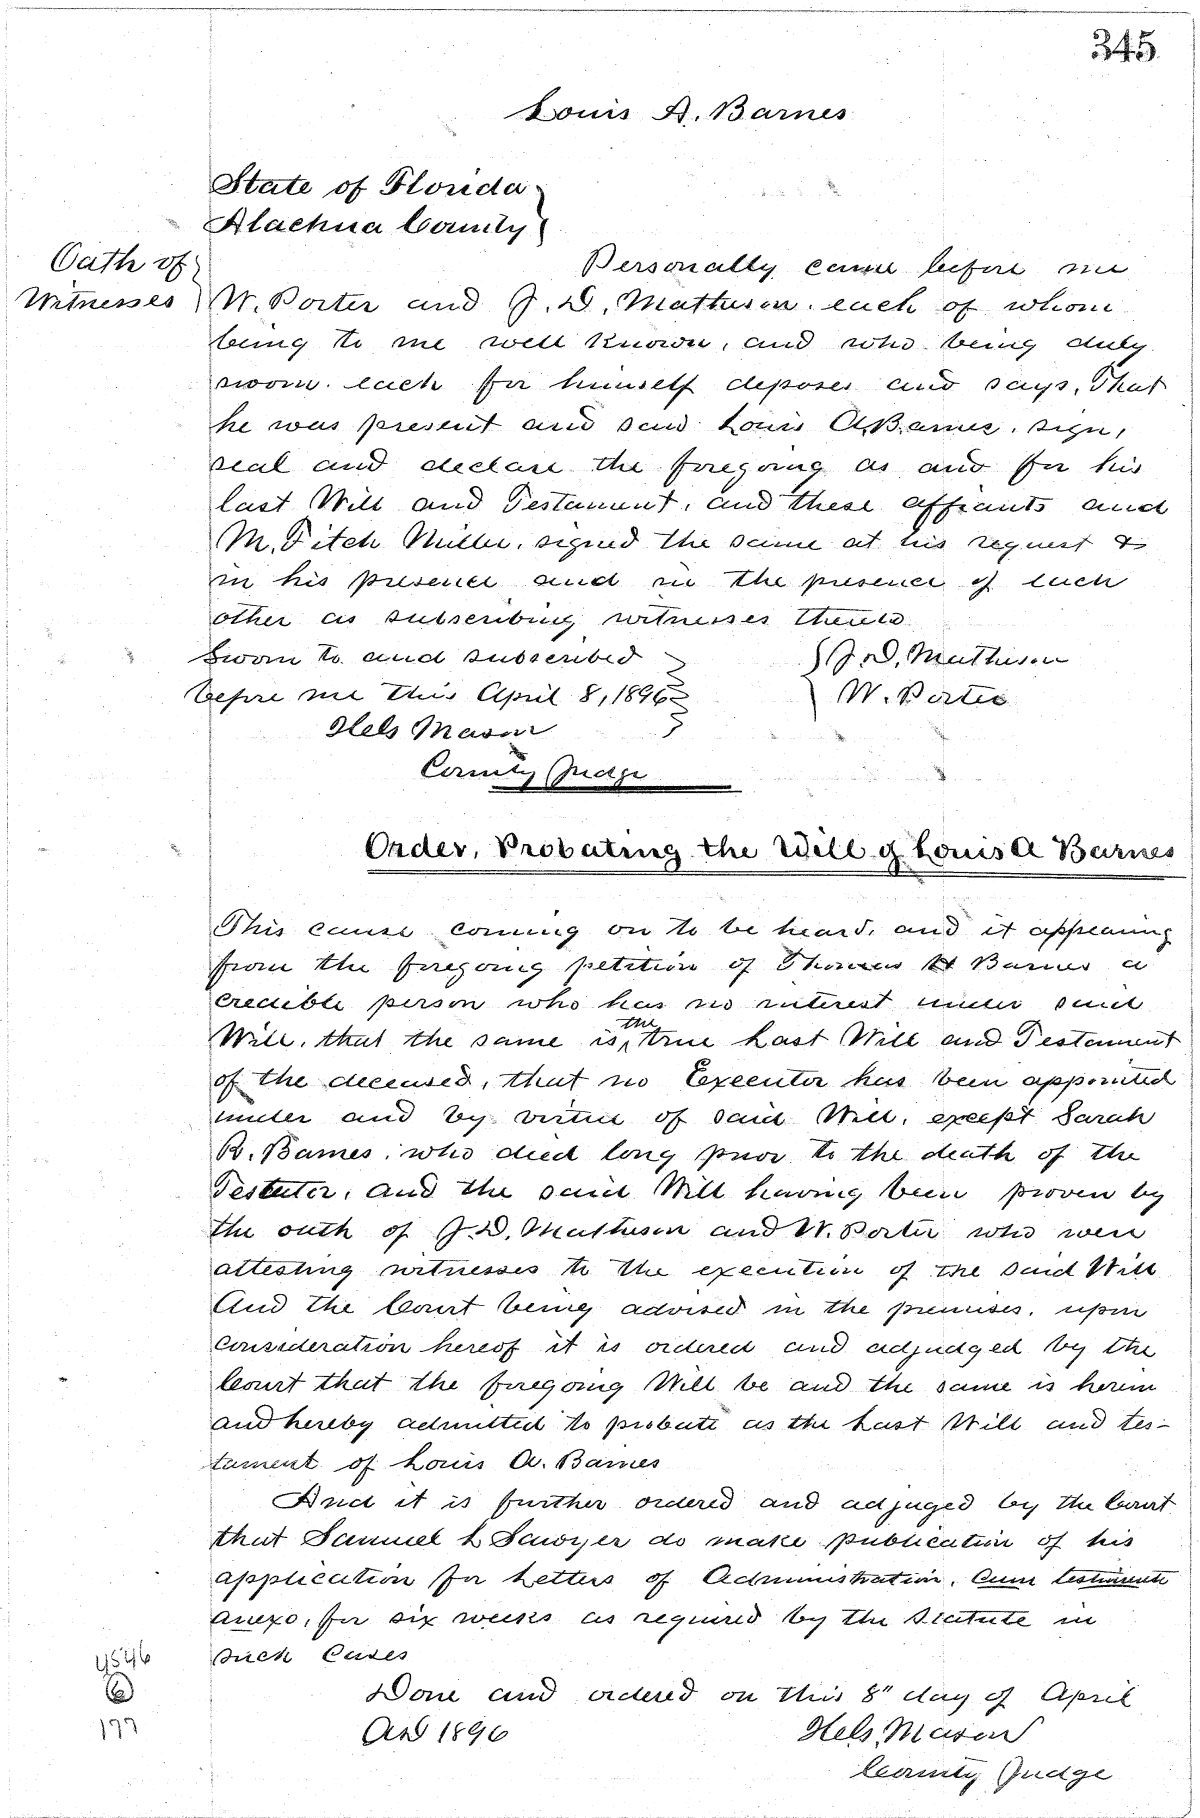 345
Louis A. Barnes
State of Florida
Alachua County
Oath of
Witnesses
Personally came before me
W. Porter and J. D. Matheson. each of whom
being to me well known, and who being duly
sworn. each for himself deposes and says, That
he was present and saw Louis A. Barnes. sign,
seal and declare the foregoing as and for his
last Will and Testament, and these affiants and
M. Fitch Miller, signed the same at his request &
in his presence and in the presence of each
other as subscribing witnesses thereto.
Sworn to and subscribed
before me this April 8, 1896
J. D. Matheson
W. Porter
Mason
County Judge
Order, Probating the Will of Louis A Barnes
This cause coming on to be heard, and it appearing
from the foregoing petition of Thomas H Barnes a
credible person who has no interest under said
Will, that the same is the true Last Will and Testament
of the deceased, that no Executor has been appointed
under and by virtue of said Will, except Sarah
R. Barnes, who died long prior to the death of the
Testator, and the said Will having been proven by
the oath of J. D. Matheson and W. Porter who were
attesting witnesses to the execution of the said Will
And the Court being advised in the premises, upon
consideration hereof it is ordered and adjudged by the
Court that the foregoing Will be and the same is herein
and hereby admitted to probate as the Last Will and tes-
tament of Louis A. Barnes
And it is further ordered and adjuged by the Court
that Samuel L Sawyer do make publication of his
application for Letters of Administration, Cum testimento
anexo, for six weeks as required by the statute in
such Cases
Done and ordered on this 8" day of April
AD 1896
Mason
County Judge
4546
6
177